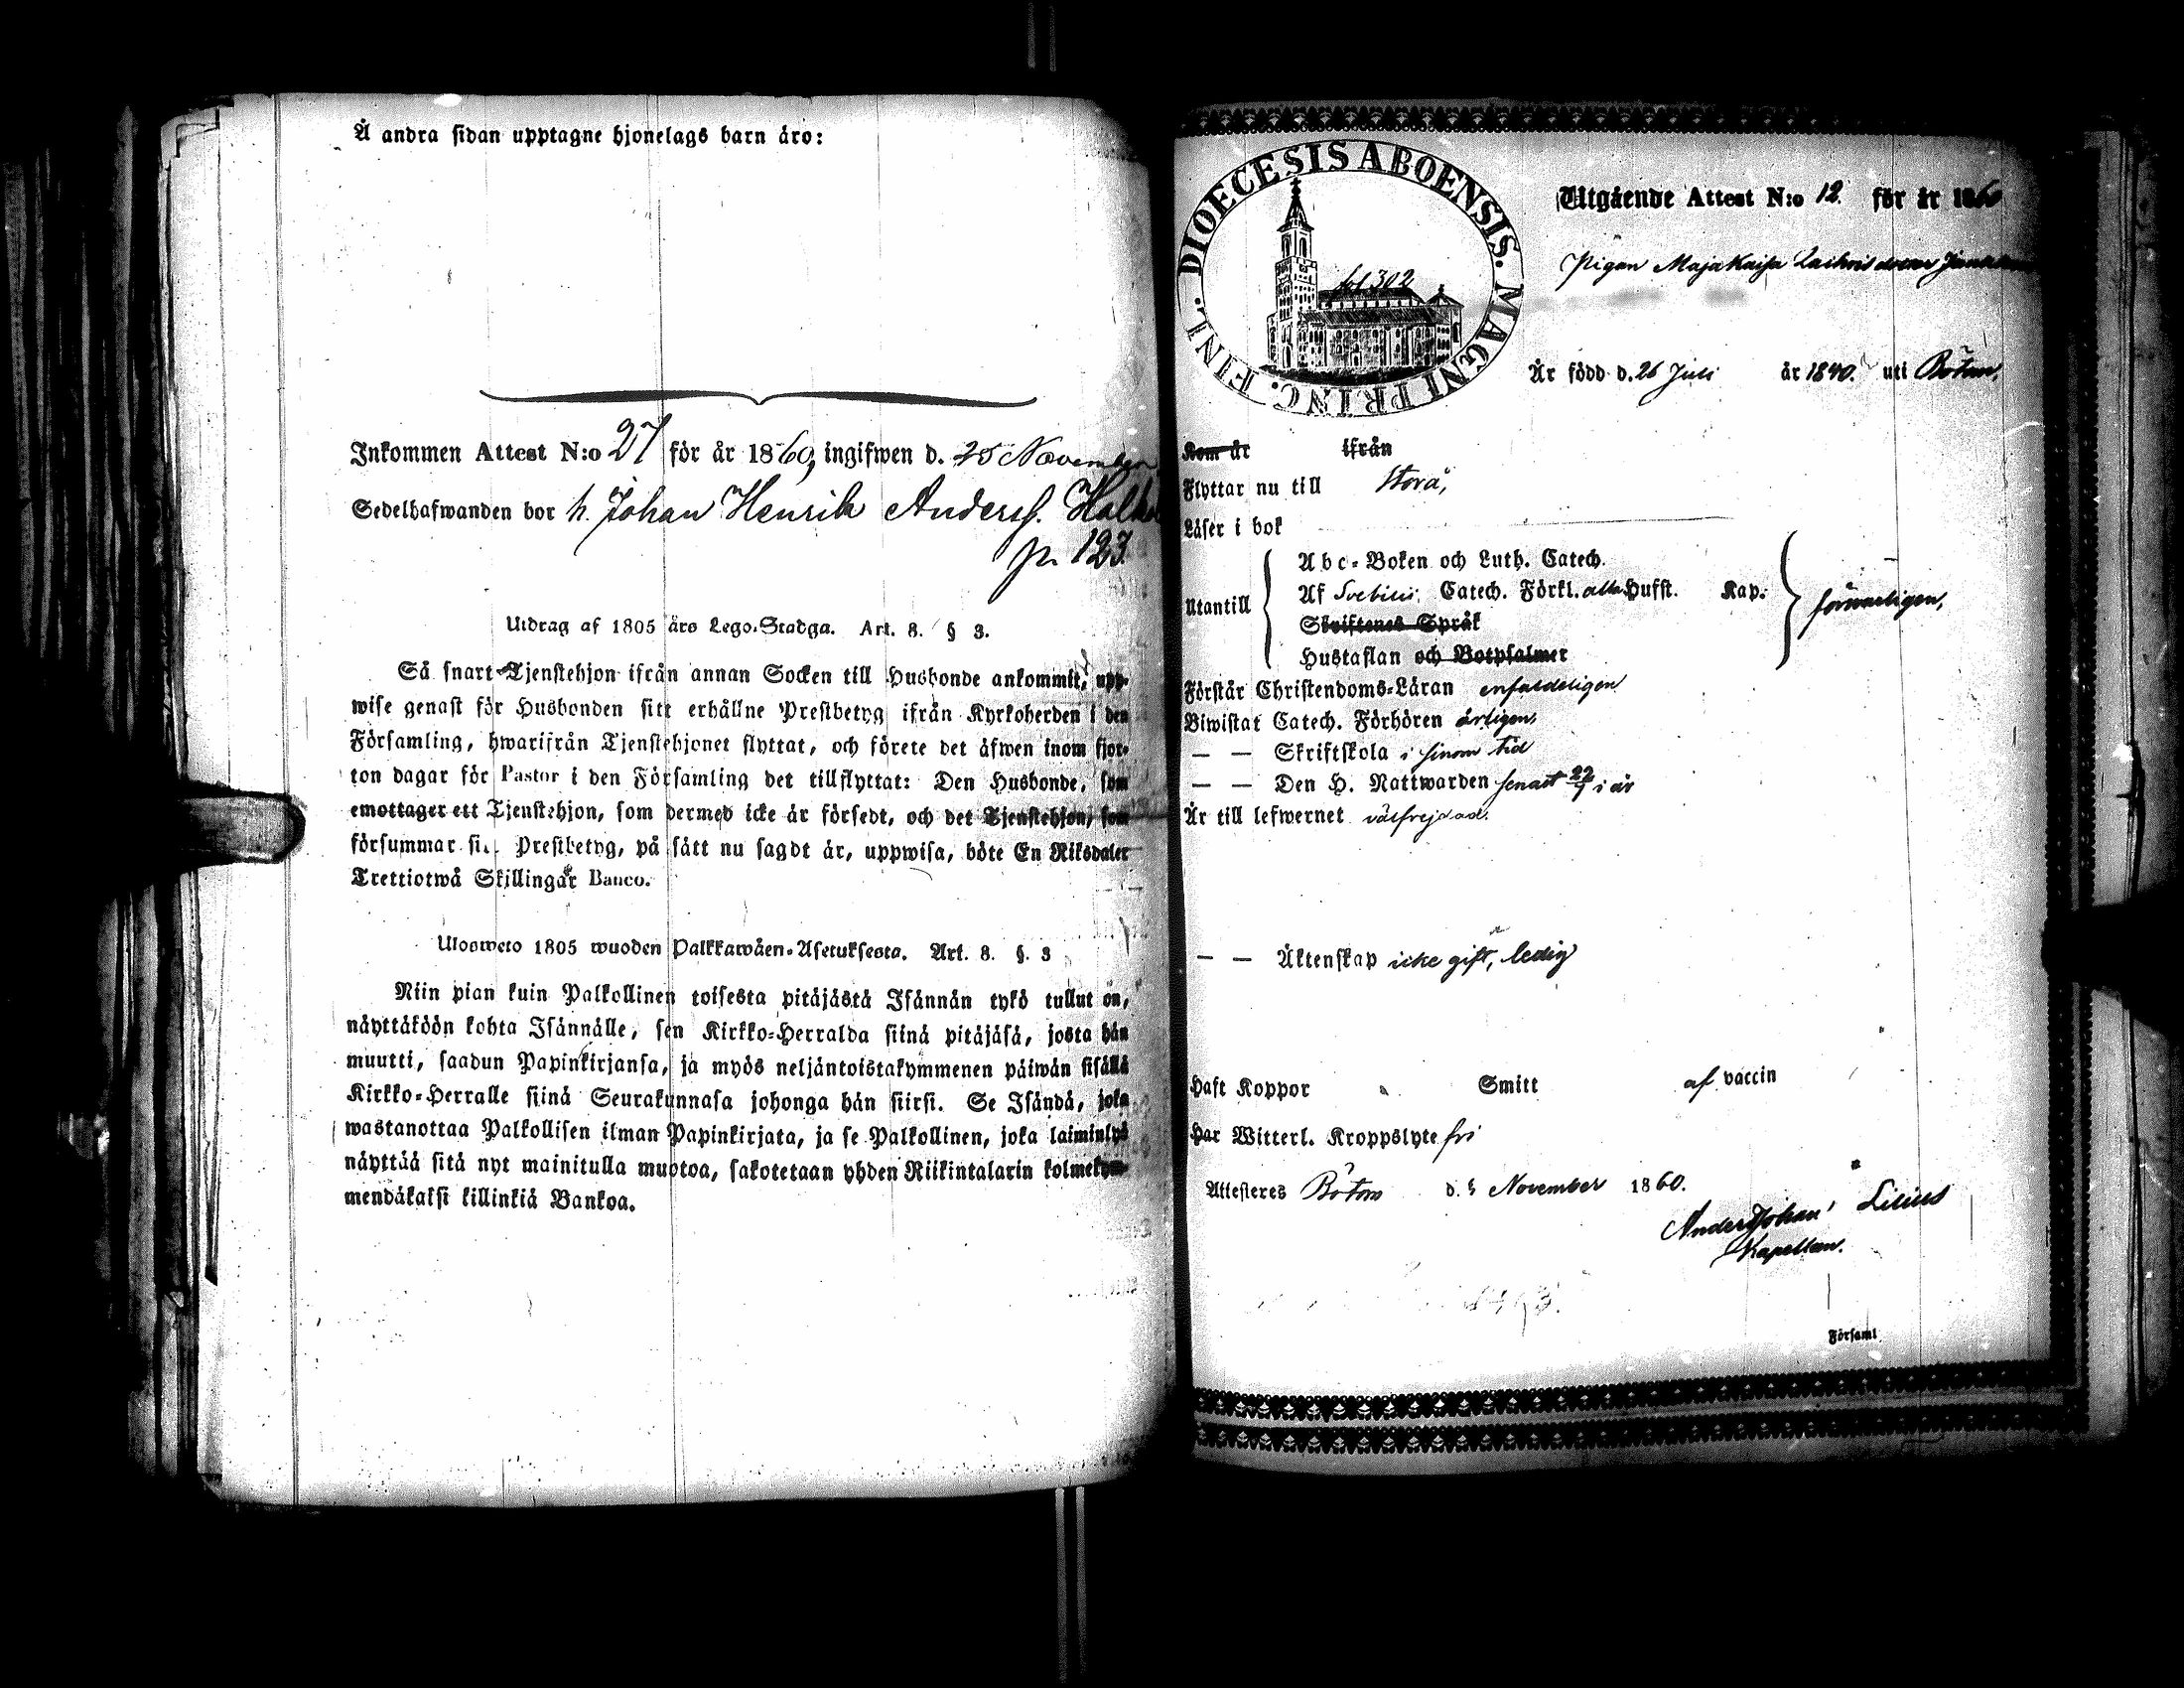 Å andra sidan upptagne hjonelags barn äro:
Inkommen Attest N:o 27 för år 1860, ingifwen d. 25 November
Sedelhafwanden bor h. Johan Henrik Anderss.
p. 123
Utdrag af 1805 års Lego-Stadga. Art. 8. § 3.
Så snart Tjenstehjon ifrån annan Socken till Husbonde ankommit, upp-
wise genast för Husbonden sitt erhållne Prestbetyg ifrån Kyrkoherden i den
Församling, hwarifrån Tjenstehjonet flyttat, och förete det äfwen inom fjor-
ton dagar för Pastor i den Församling det tillflyttat: Den Husbonde, som
emottager ett Tjenstehjon, som dermed icke är försedt, och det Tjenstehjon, som
försummar sitt Prestbetyg, på sätt nu sagdt är, uppwisa, böte En Riksdaler
Trettiotwå Skillingar Banco.
Ulosweto 1805 wuoden Palkkawäen-Asetuksesta. Art. 8. §. 3
Niin pian kuin Palkollinen toisesta pitäjästä Isännän tykö tullut on,
näyttäköön kohta Isännälle, sen Kirkko-Herralda siinä pitäjäsä, josta hän
muutti, saadun Papinkirjansa, ja myös neljäntoistakymmenen päiwän sisällä
Kirkko-Herralle siinä Seurakunnasa johonga hän siirsi. Se Isändä, joka
wastanottaa Palkollisen ilman Papinkirjata, ja se Palkollinen, joka laiminlyö
näyttää sitä nyt mainitulla muotoa, sakotetaan yhden Riikintalarin kolmekym-
mendäkaksi killinkiä Bankoa.
DIOECESIS ABOENSIS. MAGNI PRINC. FINL.
fol 302
Utgående Attest N:o 12. för år 1860
Pigan Maja Kaisa
Är född d. 26 Juli år 1840. uti Bötom,
Kom år ifrån
Flyttar nu till Storå,
Läser i bok
Abc-Boken och Luth. Catech.
Utantill Af Svebilii Catech. Förkl. alla Hufst. Kap. försvarligen,
Skriftenes Språk
Hustaflan och Botpsalmer
Förstår Christendoms-Läran enfaldeligen
Biwistat Catech. Förhören årligen,
— — Skriftskola i sinom tid
— — Den H. Nattwarden senast 22/7 i år
Är till lefwernet välfrejdad.
— — Äktenskap icke gift, ledig
Haft Koppor Smitt af vaccin
Har Witterl. Kroppslyte fri
Attesteres Bötom d. 5 November 1860.
Anders Johan Lilius
Kapellan.
Församl